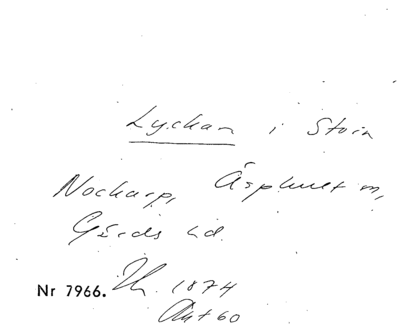 Lyckan i Stora
Nockarp, Äsphult sn,
Gärds hd.
Nr 7966. 1874
Akt 60